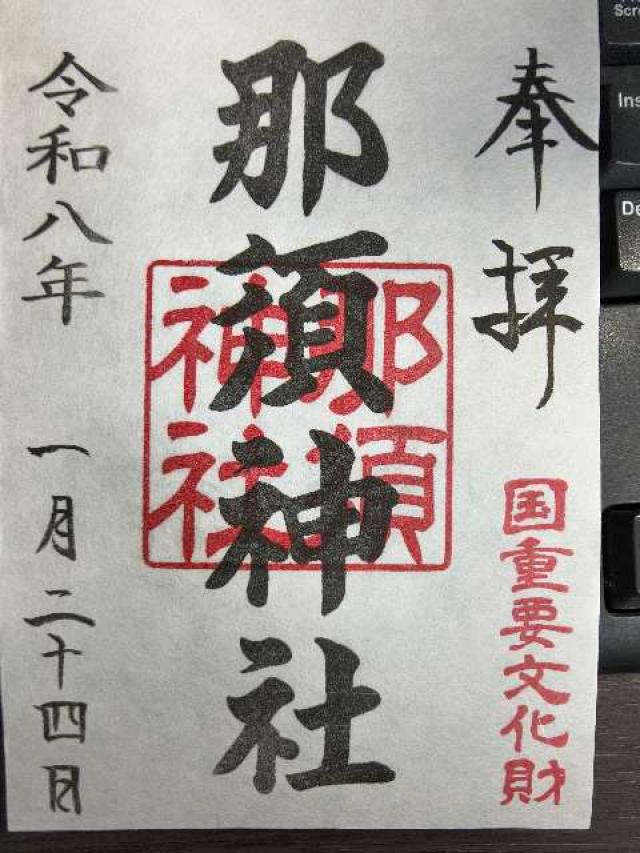 奉拝
国重要文化財
那須神社
那須
神社
令和八年 一月二十四日
Scr
Ins
De